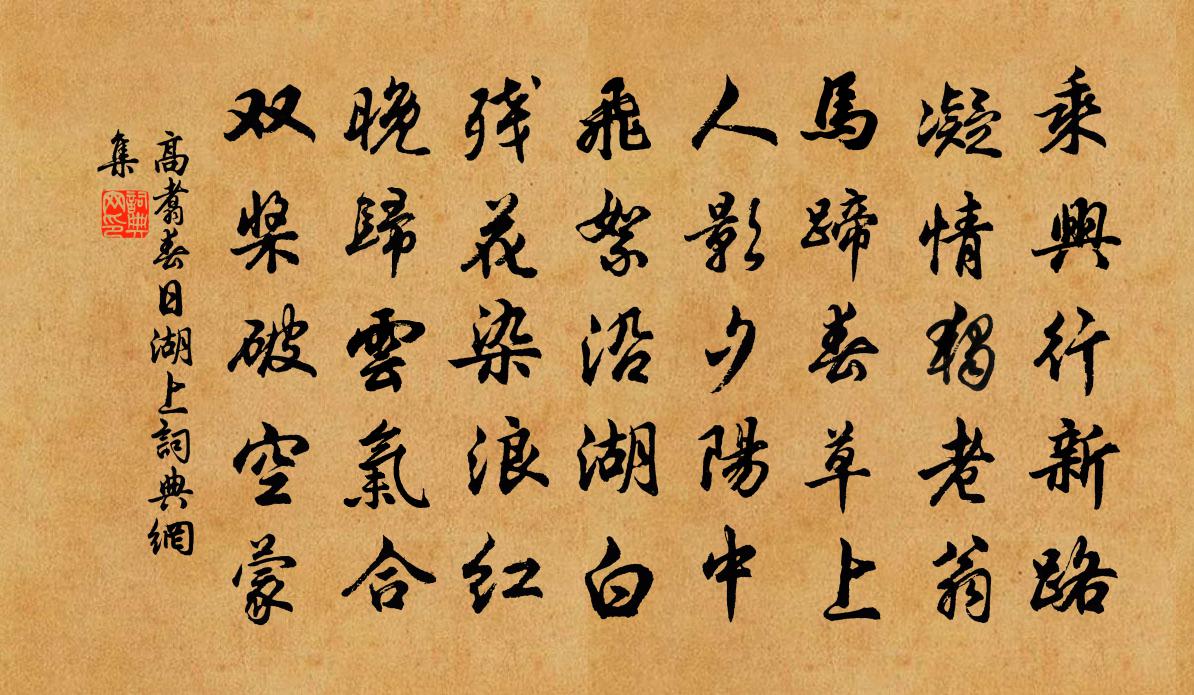 乘興行新路
凝情獨老翁
馬蹄春草上
人影夕陽中
飛絮沿湖白
残花染浪红
晚歸雲氣合
双槳破空蒙
高翥春日湖上詞典網
集
詞典
网印